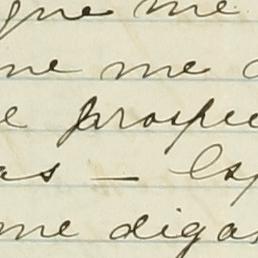 gne me
me me
e prospe
as — Esp
me digas